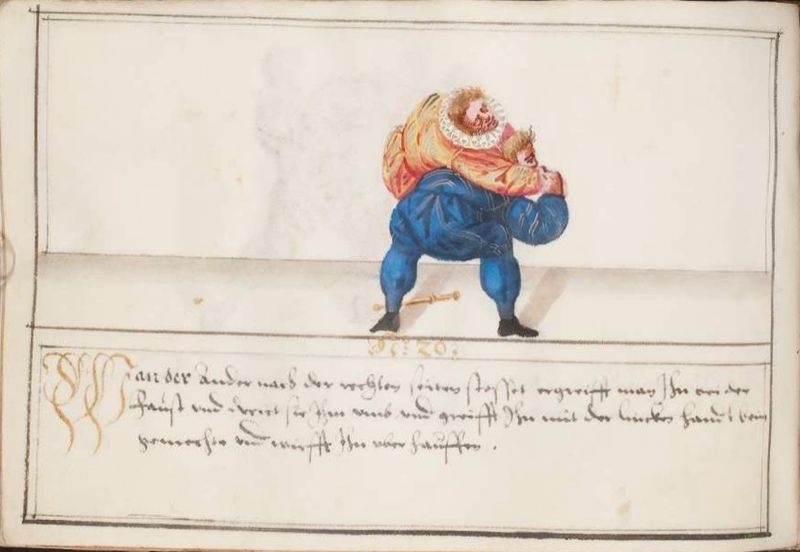 N.º 20.
Wan der Ander nach der rechten seiten stosset ergreifft man Ihn bei der
faust vnd dreiet sie Ihm vmb vnd greifft Ihn mit der lincken handt beim
gemechte vnd wirfft Ihn vber hauffen.